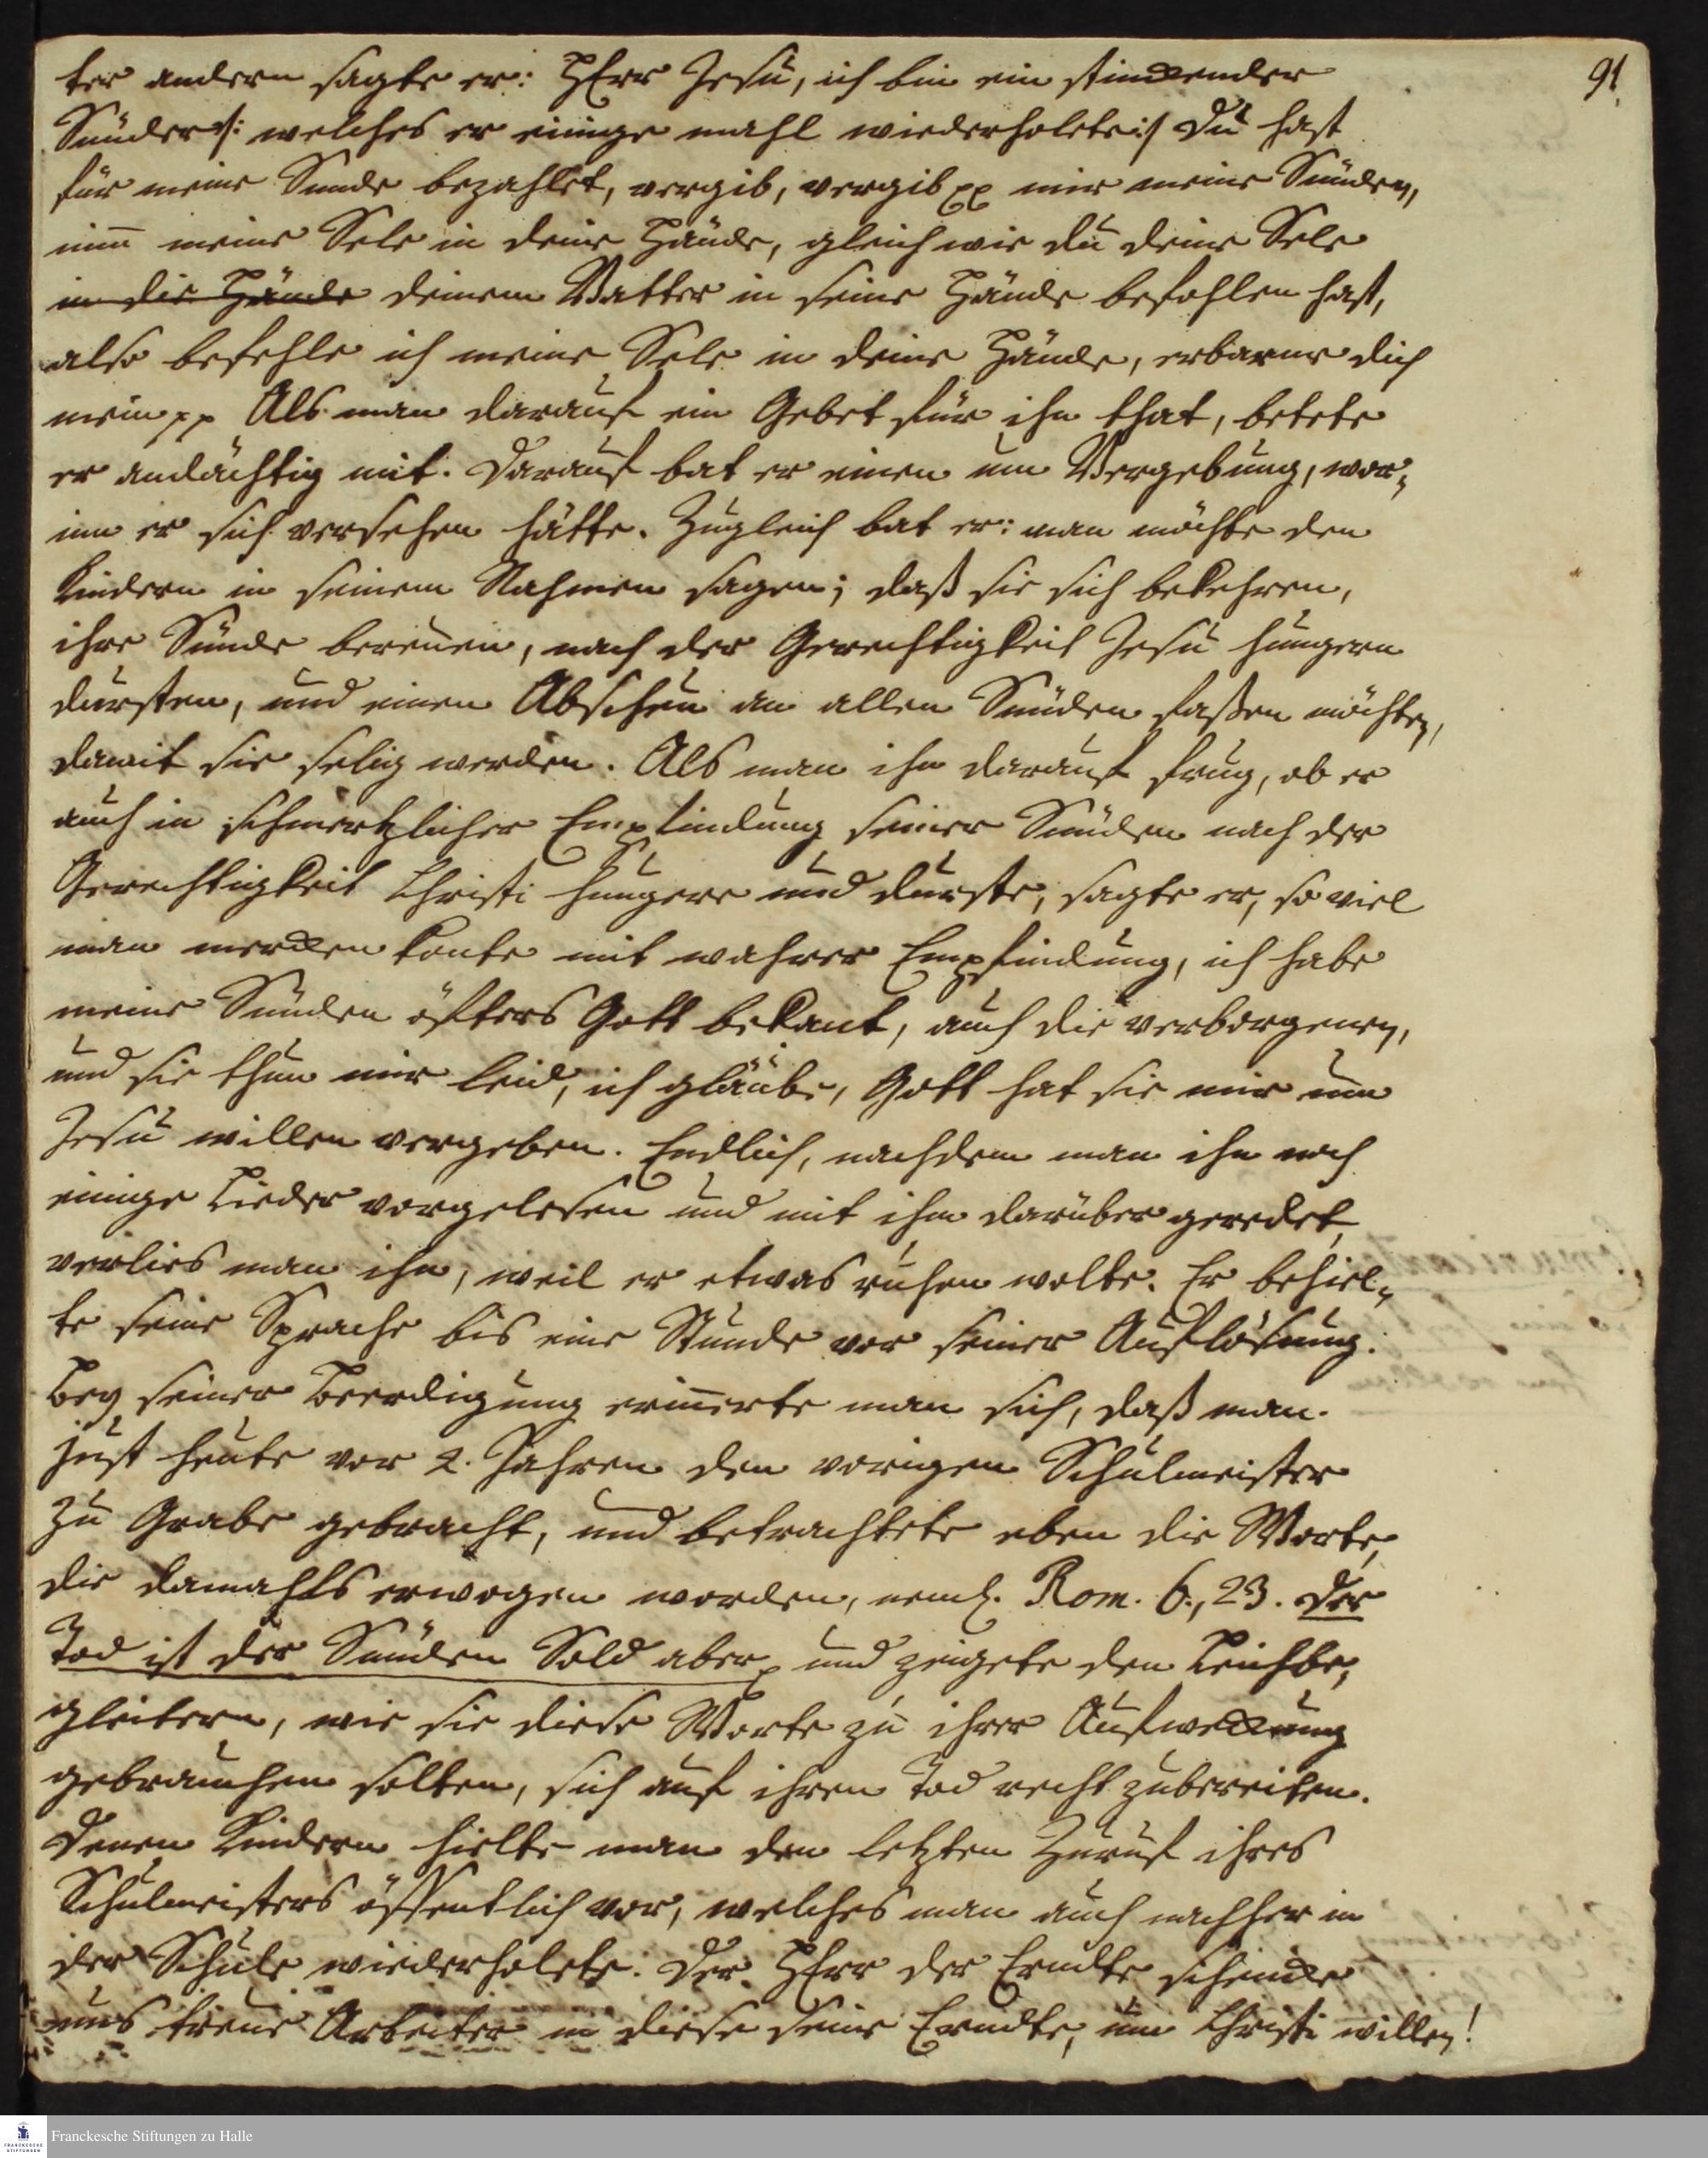 91.
ter andern sagte er: HErr Jesu, ich bin ein stinckender
Sünder /: welches er einige mahl wiederholete :/ Du hast
für meine Sunde bezahlet, vergib, vergib pp mir meine Sünden,
nim̅ meine Sele in deine Hände, gleich wie du deine Sele
in die Hände deinem Vatter in seine Hände befohlen hast,
also befehle ich meine Sele in deine Hände, erbarme dich
mein pp Als man darauf ein Gebet für ihn that, betete
er andächtig mit. Darauf bat er einen um Vergebung, wor-
inn er sich versehen hätte. Zugleich bat er: man möchte den
Kindern in seinem Nahmen sagen; daß sie sich bekehren,
ihre Sünde bereuen, nach der Gerechtigkeit Jesu hungern
dursten, und einen Abscheu an allen Sünden faßen möchten,
damit sie selig werden. Als man ihn darauf frug, ob er
auch in schmertzlicher Empfindung seiner Sünden nach der
Gerechtigkeit Christi hungere und durste, sagte er, so viel
man mercken konte mit wahrer Empfindung, ich habe
meine Sünden öfters Gott bekant, auch die verborgenen,
und sie thun mir leid, ich gläube, Gott hat sie mir um
Jesu willen vergeben. Endlich, nachdem man ihn noch
einige Lieder vorgelesen und mit ihm darüber geredet,
verlies man ihn, weil er etwas ruhen wolte. Er behiel-
te seine Sprache bis eine Stunde vor seiner Auflösung.
Bey seiner Beerdigung erin̅erte man sich, daß man
just heute vor 2. Jahren den vorigen Schulmeister
zu Grabe gebracht, und betrachtete eben die Worte,
die damahls erwogen worden, neml. Rom. 6., 23. Der
Tod ist der Sünden Sold aber p und zeigete den Leichbe-
gleitern, wie sie diese Worte zu ihrer Aufweckung
gebrauchen solten, sich auf ihren Tod recht zubereiten.
Denen Kindern hielte man den letzten Zuruf ihres
Schulmeisters öffentlich vor, welches man auch nachher in
der Schule wiederholete. Der HErr der Erndte schencke
uns treue Arbeiter in diese seine Erndte, um Christi willen!
Franckesche Stiftungen zu Halle
FRANCKESCHE
STIFTUNGEN